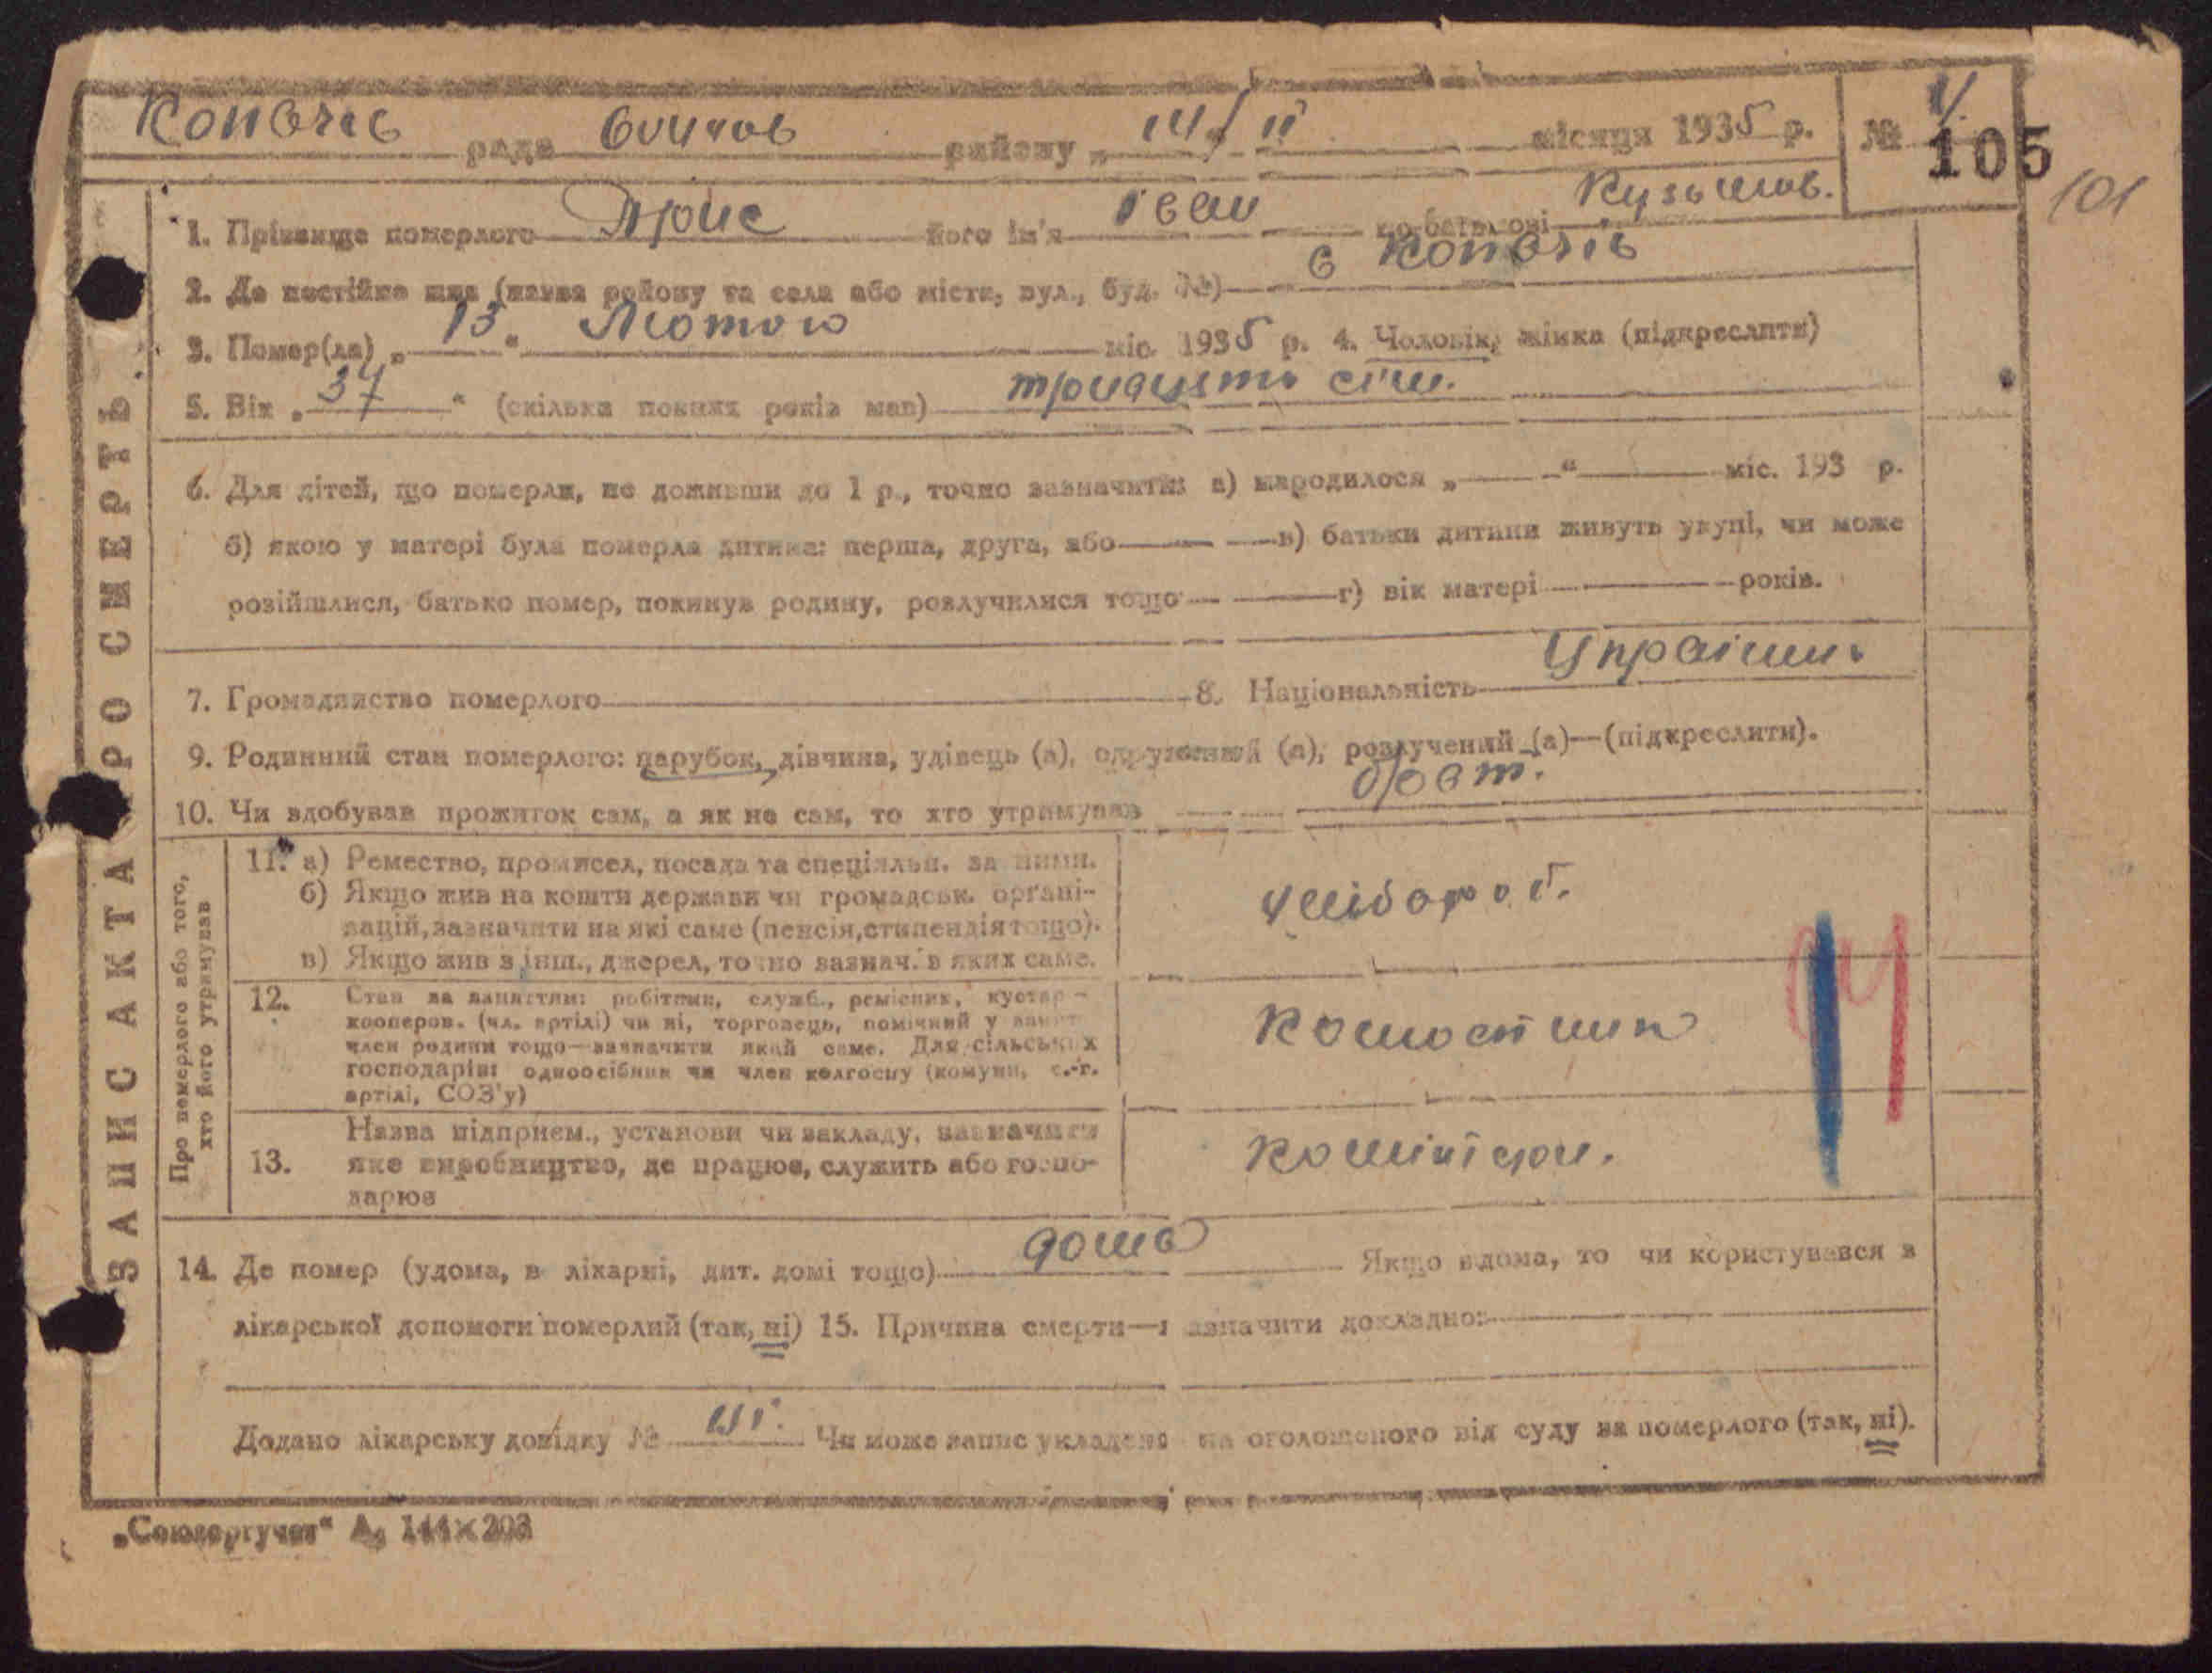 Копачів рада району „14/ II місяця 1935 р. № 4.
105
101
ЗАПИС АКТА ПРО СМЕРТЬ
1. Прізвище померлого його ім'я Іван по-батькові Кузьмов.
2. Де постійно жив (назва району та села або міста, вул., буд. №) с Копачів
3. Помер(ла) „13“ Лютого міс. 1935 р. 4. Чоловік, жінка (підкреслити)
5. Вік „37“ (скільки повних років мав) тридцять сім.
6. Для дітей, що померли, не доживши до 1 р., точно зазначити: а) народилося „ “ міс. 193 р.
б) якою у матері була померла дитина: перша, друга, або в) батьки дитини живуть укупі, чи може
розійшлися, батько помер, покинув родину, розлучилися тощо г) вік матері років.
7. Громадянство померлого 8. Національність
9. Родинний стан померлого: парубок, дівчина, удівець (а), одружений (а), розлучений (а)—(підкреслити).
10. Чи здобував прожиток сам, а як не сам, то хто утримував
Про померлого або того,
хто його утримував
11. а) Ремество, промисел, посада та спеціяльн. за ними.
б) Якщо жив на кошти держави чи громадськ. органі-
зацій, зазначити на які саме (пенсія, стипендія тощо).
в) Якщо жив з інш., джерел, точно зазнач. з яких саме.
хлібороб.
12. Стан за заняттям: робітник, служб., ремісник, кустар-
кооперов. (чл. артілі) чи ні, торговець, помічний у занят
член родини тощо—зазначити який саме. Для сільських
господарів: одноосібник чи член колгоспу (комуни, с.-г.
артілі, СОЗ'у)
13. Назва підприєм., установи чи закладу, зазначити
яке виробництво, де працює, служить або госпо-
дарює
14. Де помер (удома, в лікарні, дит. домі тощо) дома Якщо вдома, то чи користувався з
лікарської допомоги померлий (так, ні) 15. Причина смерти—зазначити докладно:
Додано лікарську довідку № Чи може запис укладено на оголошеного від суду за померлого (так, ні).
„Союзоргучет“ А₅ 144×203